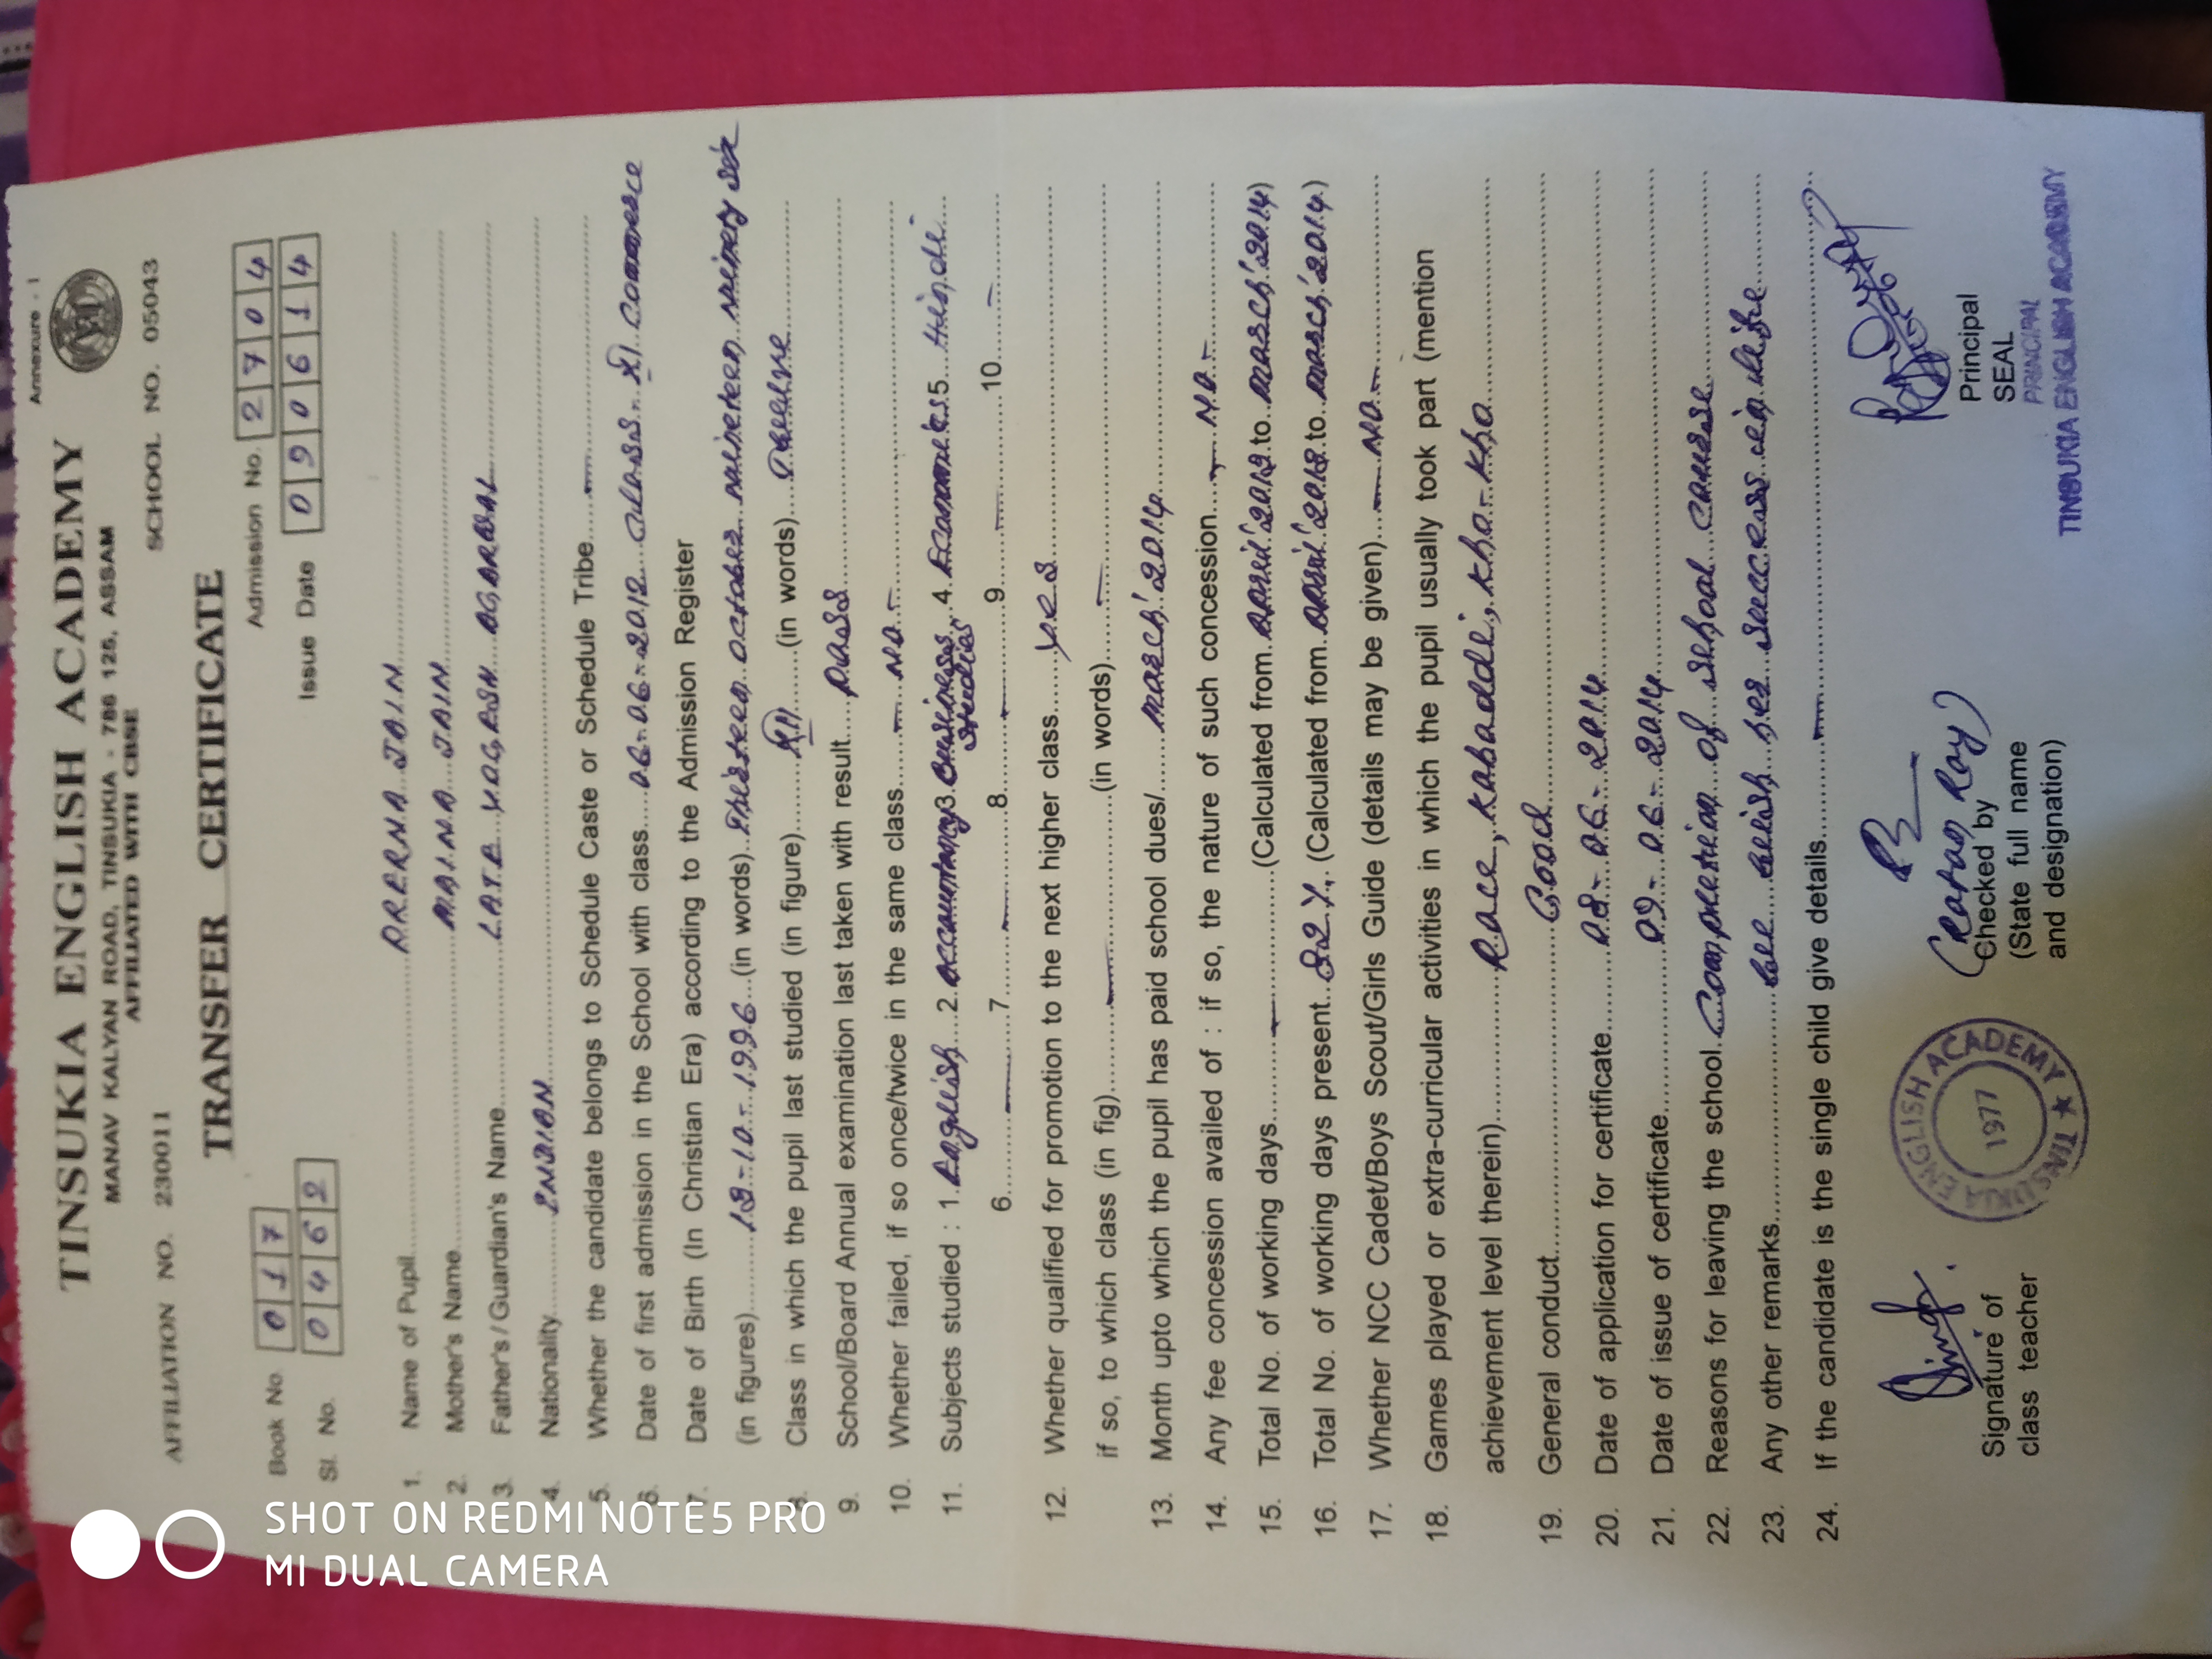 Annexure - I
TINSUKIA ENGLISH ACADEMY
MANAV KALYAN ROAD, TINSUKIA - 786 125, ASSAM
AFFILIATED WITH CBSE
AFFILIATION NO. 230011 SCHOOL NO. 05043
TRANSFER CERTIFICATE
Book No. 017 Admission No. 2704
Sl. No. 0462 Issue Date 090614
1. Name of Pupil PRERNA JAIN
2. Mother's Name MAINA JAIN
3. Father's / Guardian's Name LATE YOGESH AGARWAL
4. Nationality INDIAN
5. Whether the candidate belongs to Schedule Caste or Schedule Tribe —
6. Date of first admission in the School with class 06-06-2012 Class-XI Commerce
7. Date of Birth (In Christian Era) according to the Admission Register
(in figures) 18-10-1996 (in words) October Nineteen Ninety Six
8. Class in which the pupil last studied (in figure) XII (in words) Twelve
9. School/Board Annual examination last taken with result Pass
10. Whether failed, if so once/twice in the same class — No —
11. Subjects studied : 1. English 2. Accountancy 3. Business Studies 4. Economics 5. Hindi
6. — 7. — 8. — 9. — 10. —
12. Whether qualified for promotion to the next higher class Yes
if so, to which class (in fig) — (in words) —
13. Month upto which the pupil has paid school dues/ March'2014
14. Any fee concession availed of : if so, the nature of such concession — No —
15. Total No. of working days — (Calculated from April'2012 to March'2014)
16. Total No. of working days present 82%. (Calculated from April'2013 to March'2014)
17. Whether NCC Cadet/Boys Scout/Girls Guide (details may be given) — No —
18. Games played or extra-curricular activities in which the pupil usually took part (mention
achievement level therein) Race, Kabaddi, Kho-Kho
19. General conduct Good
20. Date of application for certificate 08-06-2014
21. Date of issue of certificate 09-06-2014
22. Reasons for leaving the school Completion of school course
23. Any other remarks We wish her success in life
24. If the candidate is the single child give details —
(Ratan Roy)
Signature of
class teacher
Checked by
(State full name
and designation)
Principal
SEAL
PRINCIPAL
TINSUKIA ENGLISH ACADEMY
TINSUKIA ENGLISH ACADEMY ★
1977
SHOT ON REDMI NOTE5 PRO
MI DUAL CAMERA